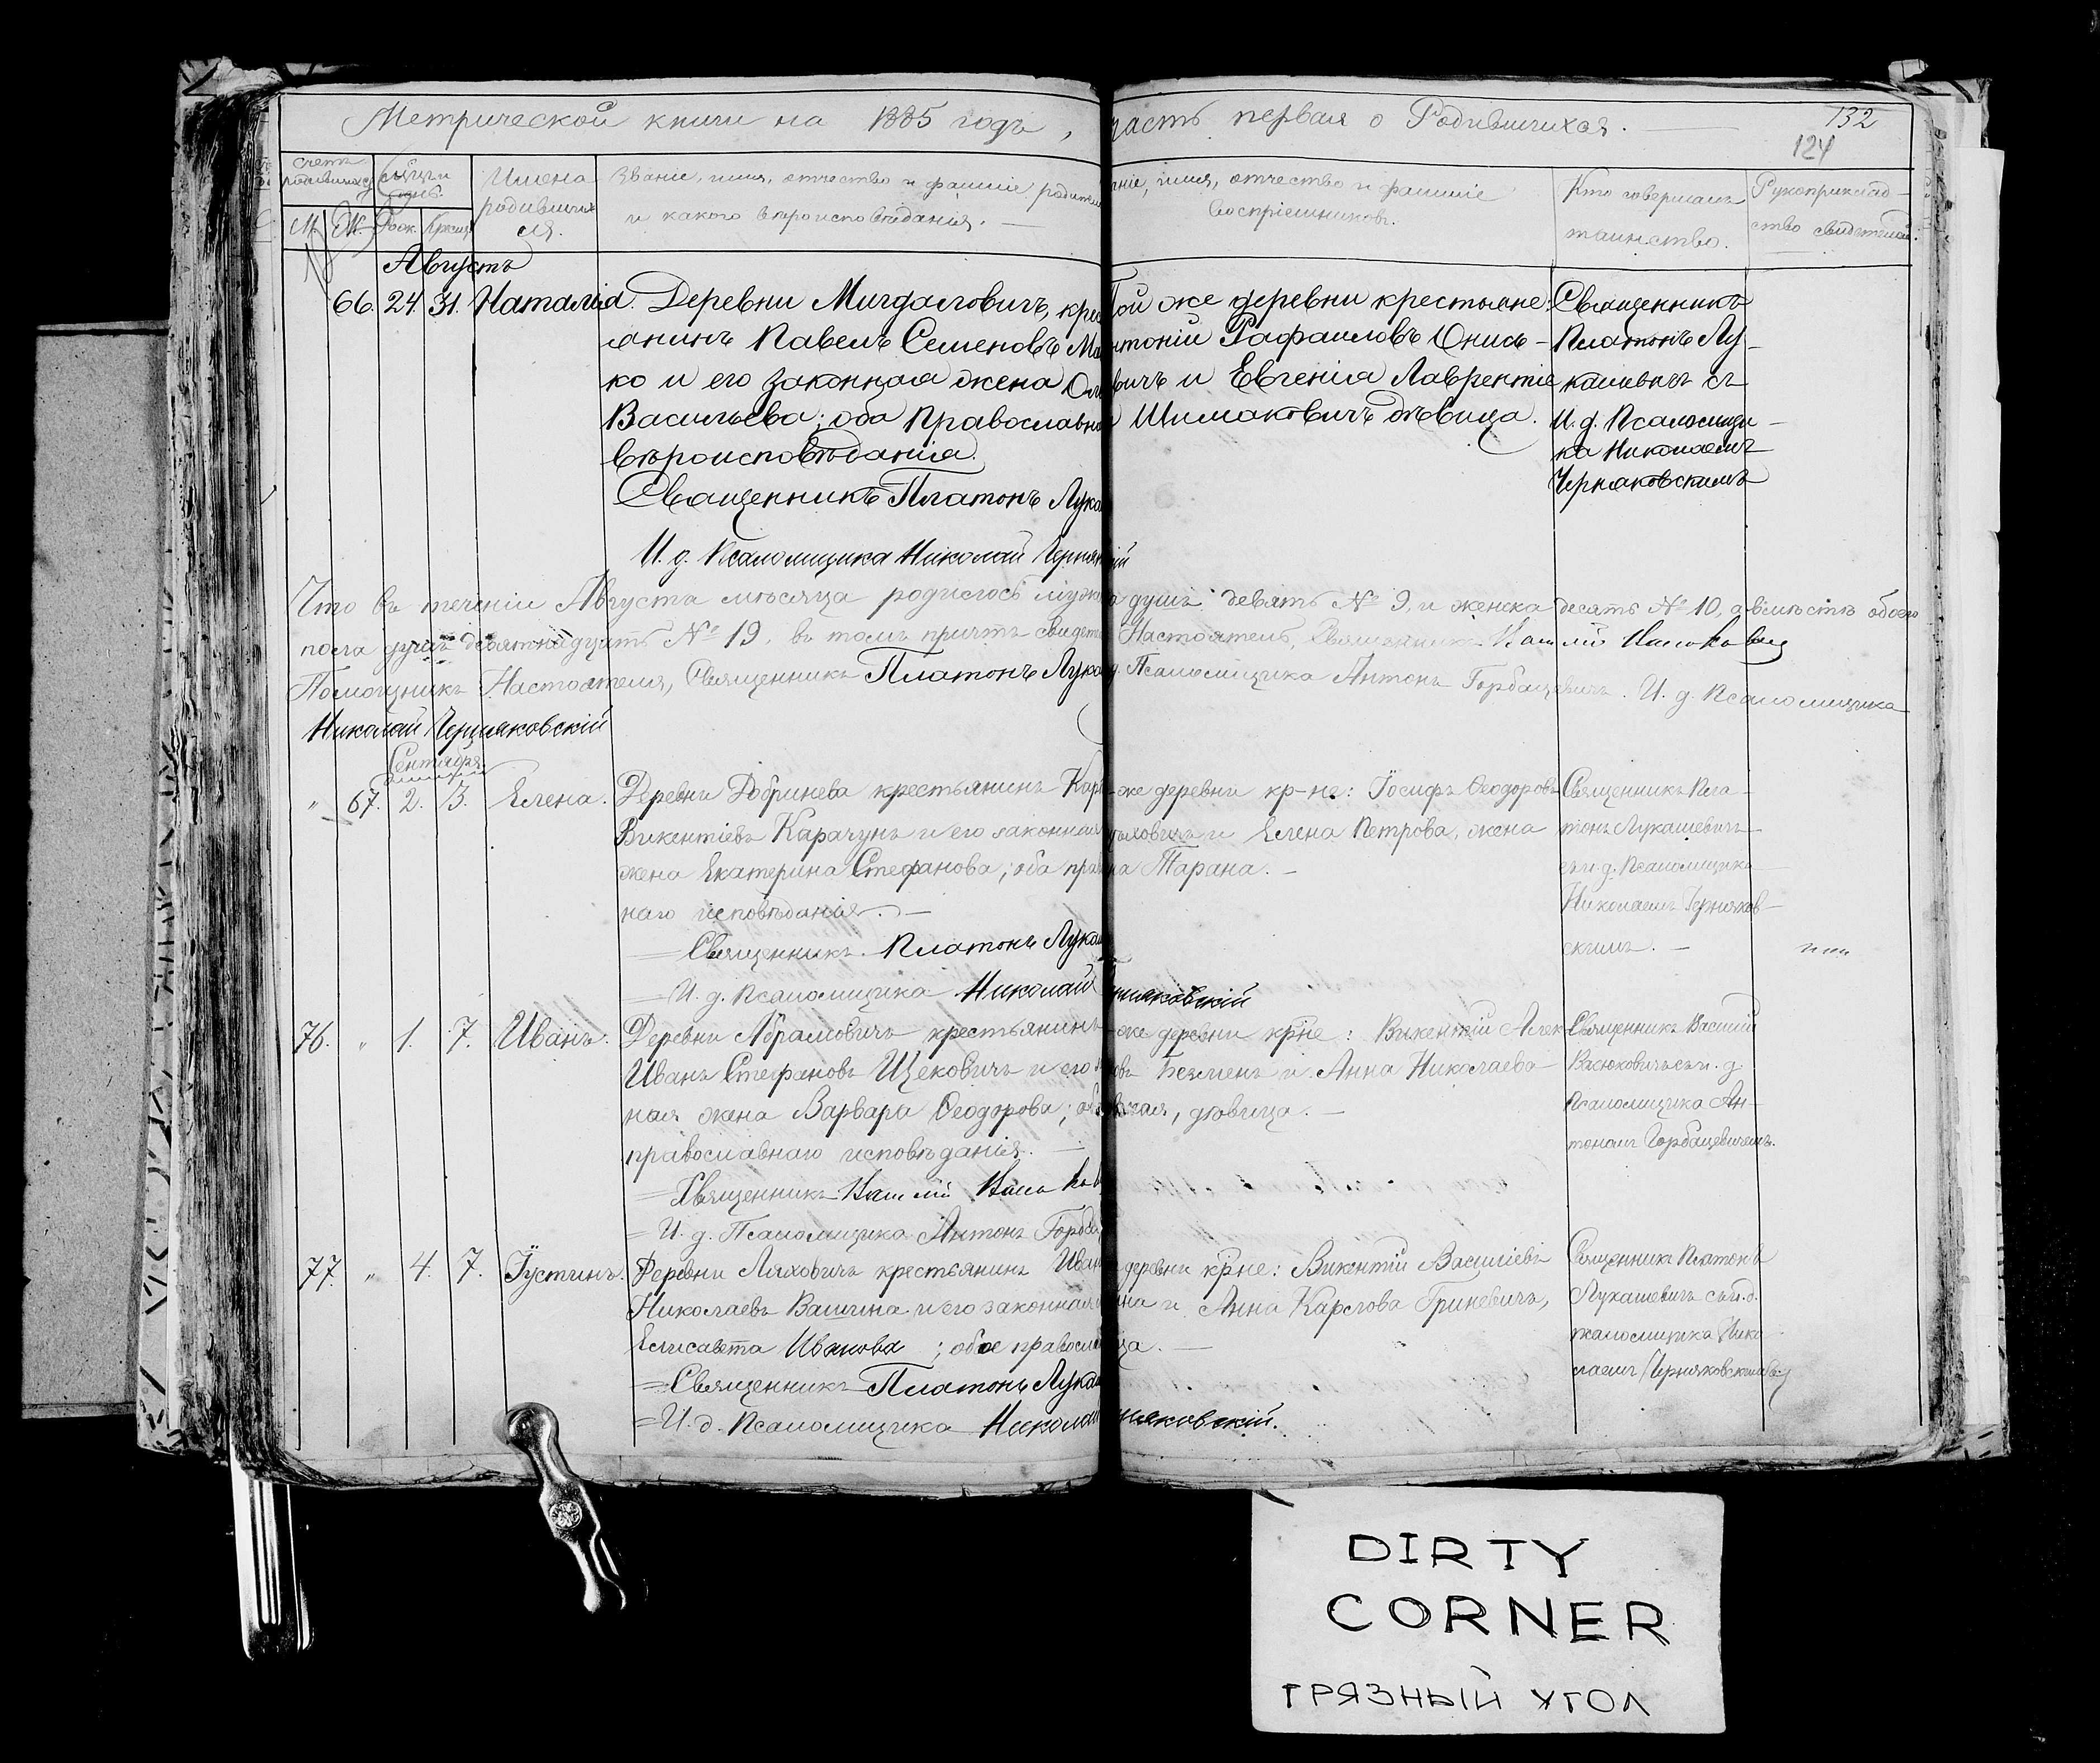 Метрической книги на 1885 годъ, часть первая о Родившихся.
132
124
Счетъ родившихся
Мѣсяцъ и день
М. Ж. Рожд. Крещ.
Имена родившихся.
Званіе, имя, отчество и фамиліе родител
и какого вѣроисповѣданія.
ніе, имя, отчество и фамиліе
воспріемниковъ.
Кто совершалъ
таинство.
Рукоприклад-
ство свидѣтелей.
Августъ
66. 24. 31. Наталія.
Деревни Мигдаловичъ, крес
янинъ Павелъ Семеновъ Ма
ко и его законная жена Ол
Васильева; оба Православна
вѣроисповѣданія.
Священникъ Платонъ Лука
И. д. Псаломщика Николай Черня
Той же деревни крестьяне:
нтоній Рафаиловъ Онись-
вичъ и Евгенія Лаврентіе
Шимаковичъ дѣвица.
Священникъ
Платонъ Лу-
кашевичъ съ
И. д. Псаломщи-
ка Николаемъ
Черняковскимъ
Что въ теченіи Августа мѣсяца родилось мужеска душъ девять № 9, и женска десять № 10, а вмѣстѣ обоего
пола душъ девятнадцать № 19, въ томъ причтъ свидет Настоятель, Священникъ Василій Васюковичъ
Помощникъ Настоятеля, Священникъ Платонъ Лука д. Псаломщика Антонъ Горбацевичъ. И. д. Псаломщика
Николай Черняковскій
Сентября
" 67. 2. 3. Елена.
Деревни Добринева крестьянинъ Кар
Викентіевъ Карачунъ и его законная
жена Екатерина Стефанова; оба прав
наго исповѣданія. —
= Священникъ Платонъ Лука
= И. д. Псаломщика Николай Черняковскій
же деревни кр-не: Іосифъ Ѳеодоровъ
ховичъ и Елена Петрова, жена
на Тарана. —
Священникъ Пла-
тонъ Лукашевичъ
съ и. д. Псаломщика
Николаемъ Черняков-
скимъ. —
76. " 1. 7. Иванъ.
Деревни Абрамовичъ крестьянинъ
Иванъ Стефановъ Щековичъ и его
ная жена Варвара Ѳеодорова; об
православнаго исповѣданія. —
= Священникъ Василій Васюков
= И. д. Псаломщика Антонъ Горбац
-же деревни кр-не: Викентій Алек-
овъ Безменъ и Анна Николаева
ая, дѣвица. —
Священникъ Василій
Васюковичъ съ и. д.
Псаломщика Ан-
тономъ Горбацевичемъ.
77. " 4. 7. Іустинъ.
Деревни Ляховичъ крестьянинъ Иван
Николаевъ Вашина и его законная
Елисавета Иванова; обое правосл
= Священникъ Платонъ Лука
= И. д. Псаломщика Николай Черняковскій.
деревни кр-не: Викентій Василіевъ
ина и Анна Карлова Гриневичъ,
ца. —
Священникъ Платонъ
Лукашевичъ съ и. д.
псаломщика Нико-
лаемъ Черняковскимъ
DIRTY
CORNER
ГРЯЗНЫЙ УГОЛ